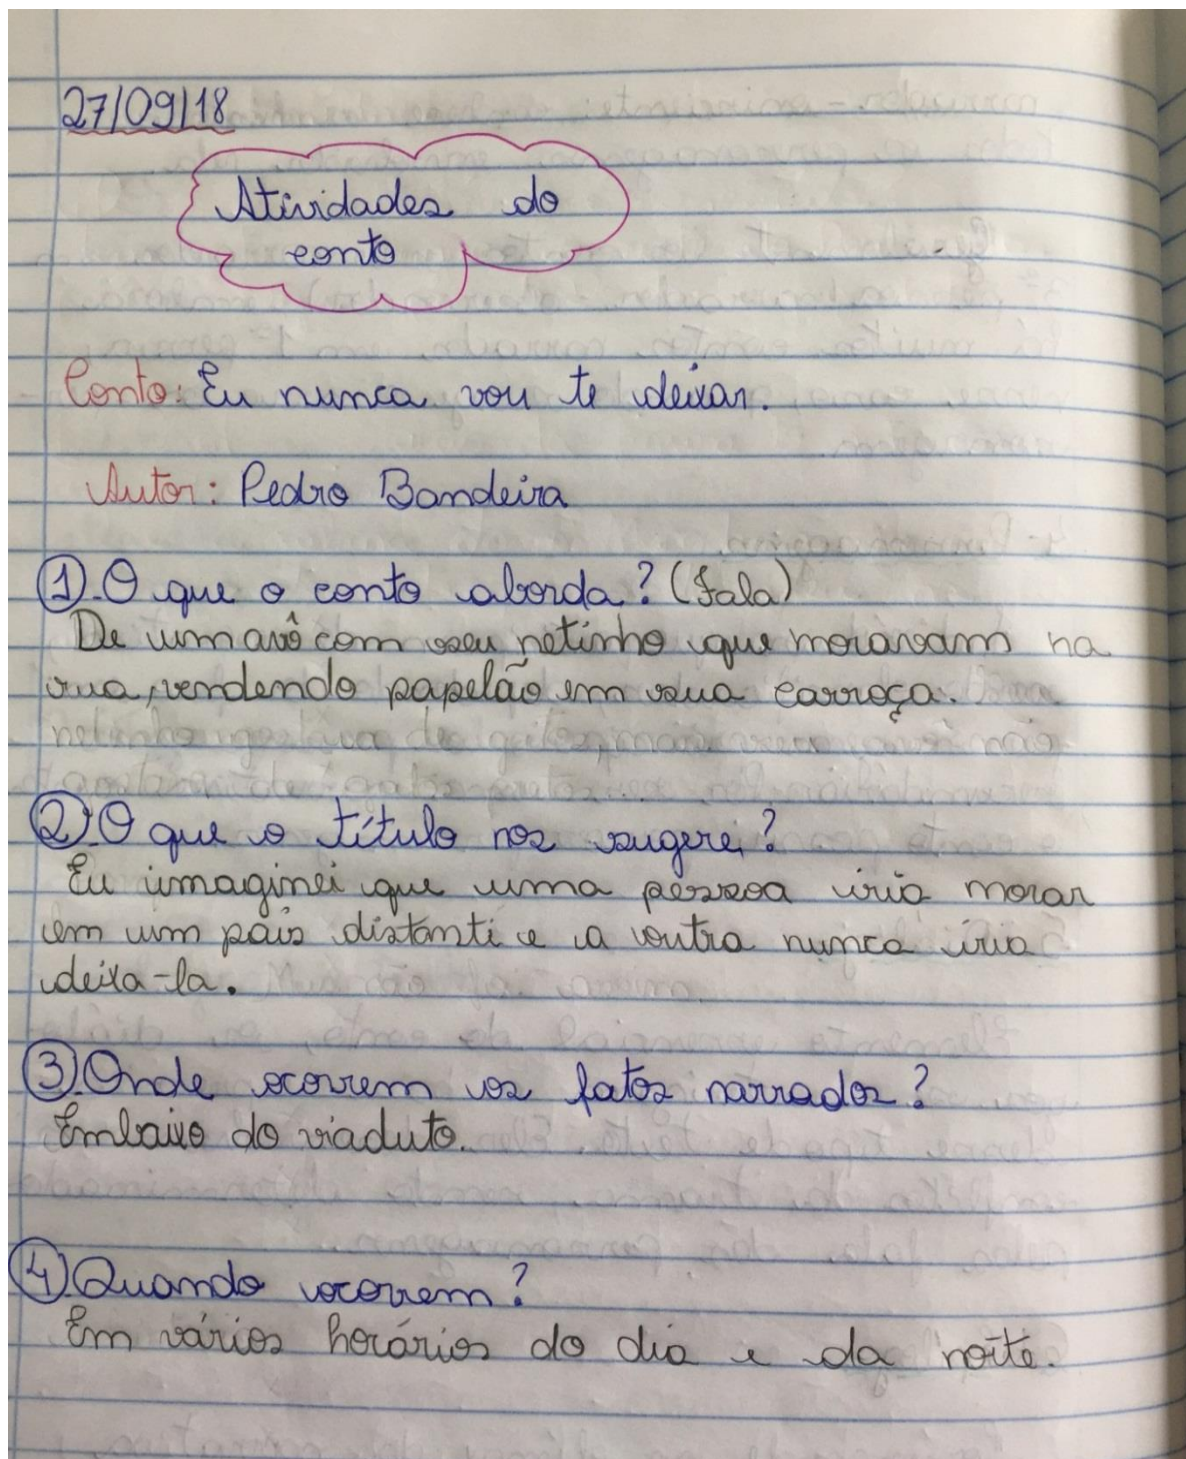 27/09/18
Atividades do
conto
Conto: Eu nunca vou te deixar.
Autor: Pedro Bandeira
1). O que o conto aborda? (Fala)
De um avô com seu netinho que moravam na
rua, vendendo papelão em sua carroça.
2). O que o título nos sugere?
Eu imaginei que uma pessoa iria morar
em um país distanti e a outra nunca iria
deixa-la.
3). Onde ocorrem os fatos narrados?
Embaixo do viaduto.
4). Quando ocorrem?
Em vários horários do dia e da noite.